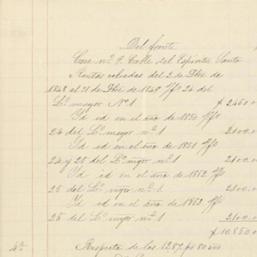 Del frente
Casa nº 9 Calle del Espíritu Santo
Rentas cobradas del 2 de Dbre de
1848 al 21 de Dbre de 1849 Fº 24 del
Lº mayor Nº 1 $ 2460.0
Id id en el año de 1850 Fº
24 del Lº mayor nº 1 2100.0
Id id en el año de 1851 Fº
24 y 28 del Lº mayor nº 1 2100.0
Id id en el año de 1852 Fº
28 del Lº mayor nº 1 2100.0
Id id en el año de 1853 Fº
28 del Lº mayor nº 1 2100.0
$ 10.850.0
4º Respecto de los 1287 ps 80